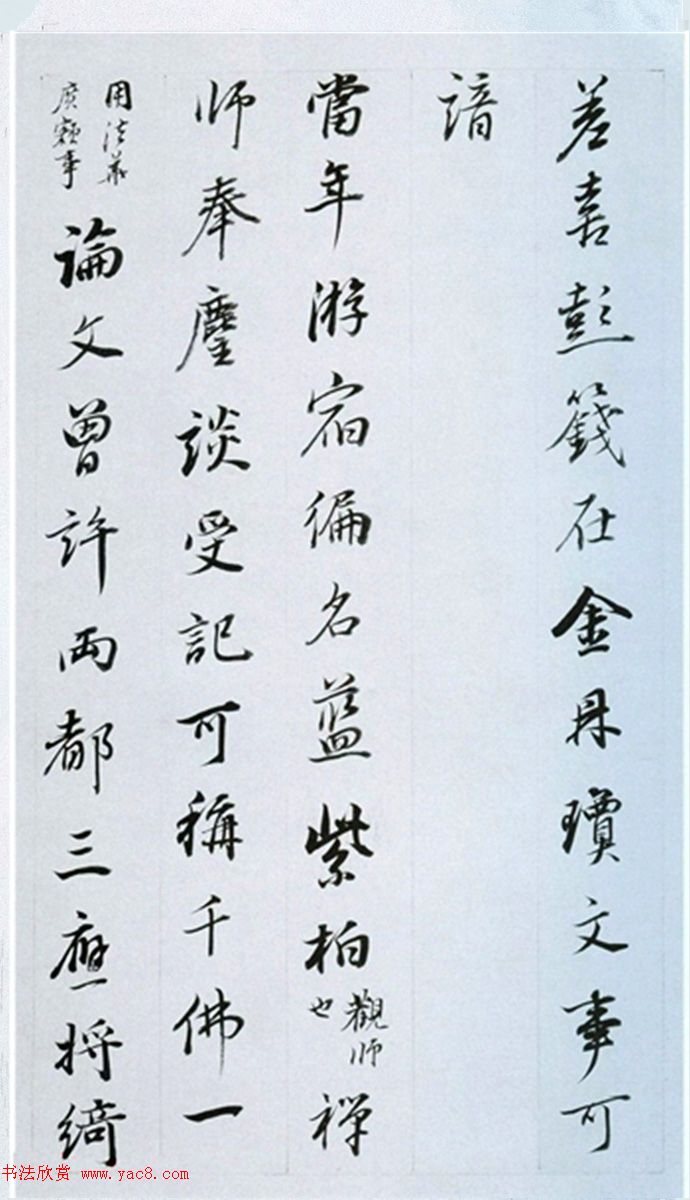 差喜彭籛在金丹瓊文事可
諳
當年游宿徧名藍紫柏觀師也禪
師奉麈談受記可稱千佛一
用法華
廣額事
論文曾許両都三應將綺
书法欣赏 www.yac8.com